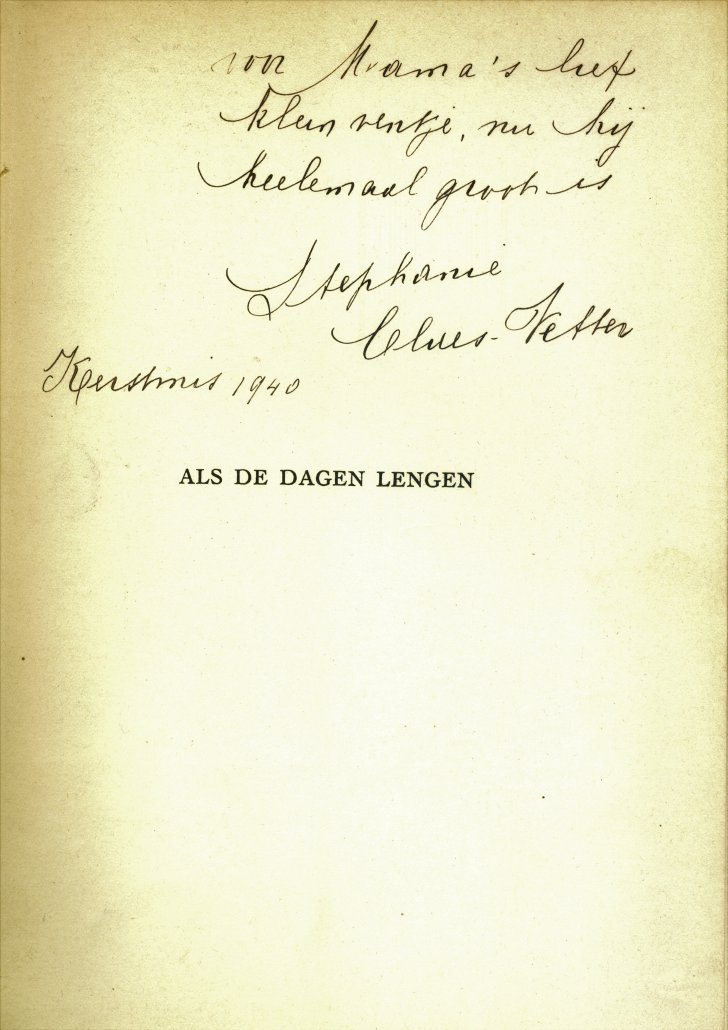 voor Mama's lief
klein ventje, nu hij
heelemaal groot is
Stephanie
Claes-Vetter
Kerstmis 1940
ALS DE DAGEN LENGEN